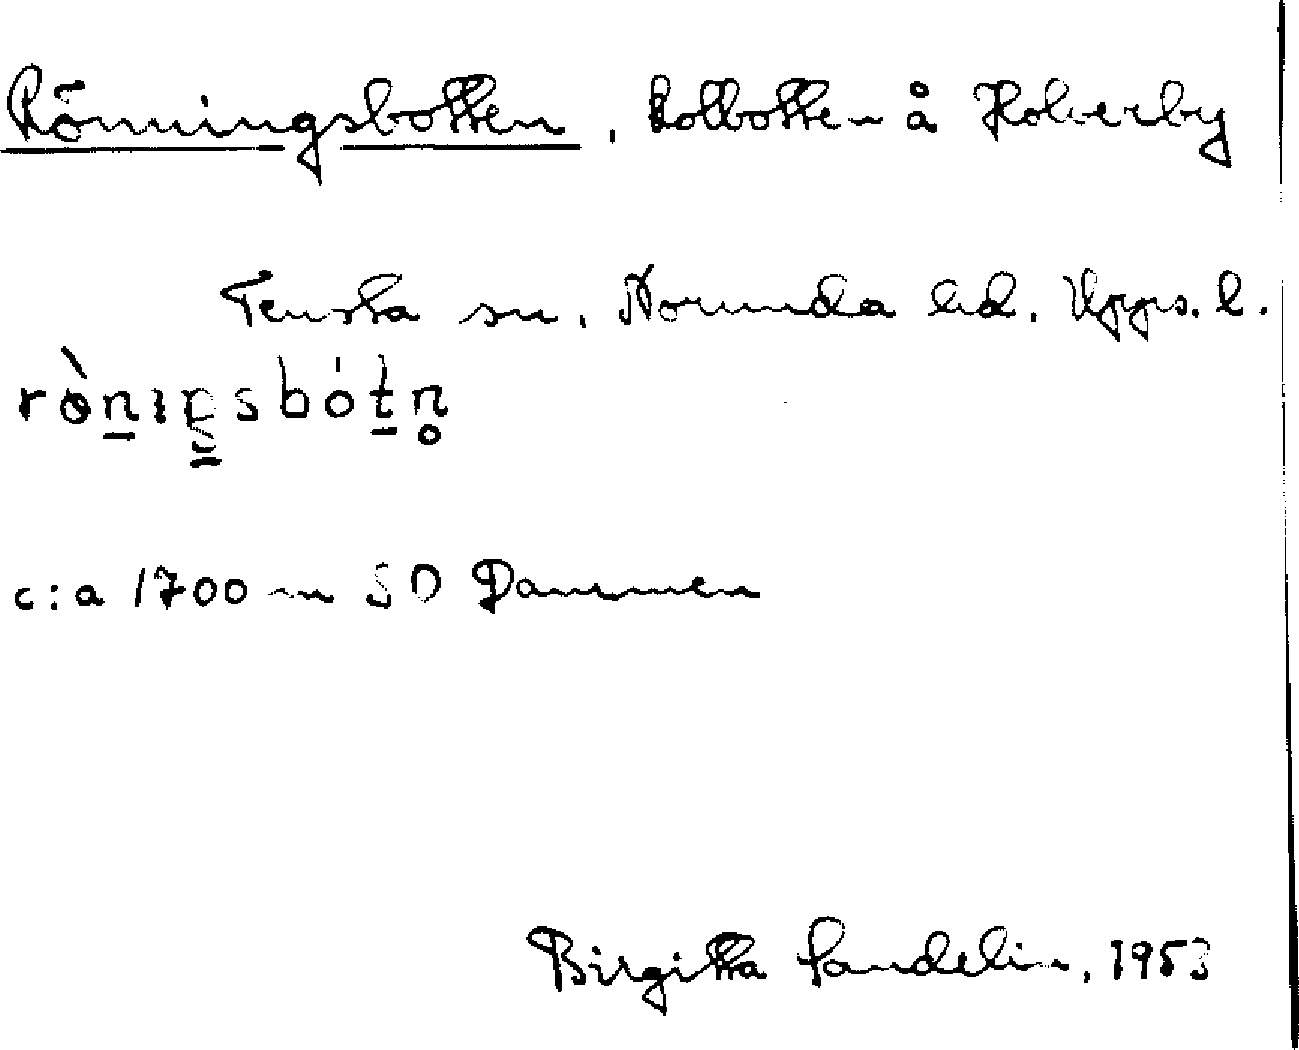 Rönningsbotten, kolbotten å Holverby
Tensta sn, Norunda hd. Upps. l.
c:a 1700 m SO Dammen
Birgitta Sandelin, 1953